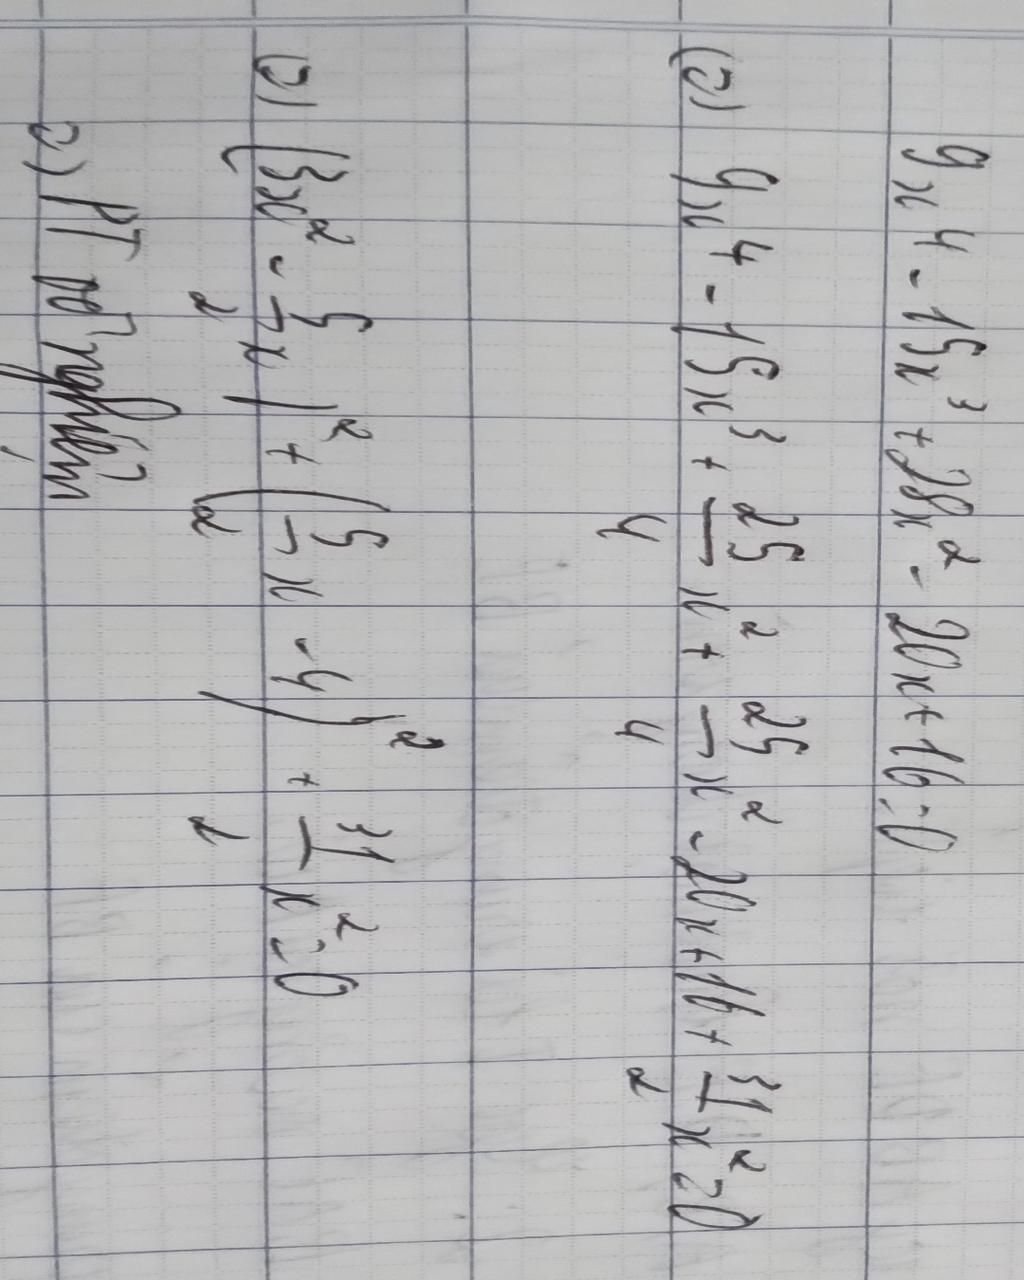 9x⁴ - 15x³ + 28x² - 20x + 16 = 0
(=) 9x⁴ - 15x³ + 25/4 x² + 25/4 x² - 20x + 16 + 31/2 x² = 0
(=) (3x² - 5/2 x)² + (5/2 x - 4)² + 31/2 x² = 0
=) PT vô nghiệm